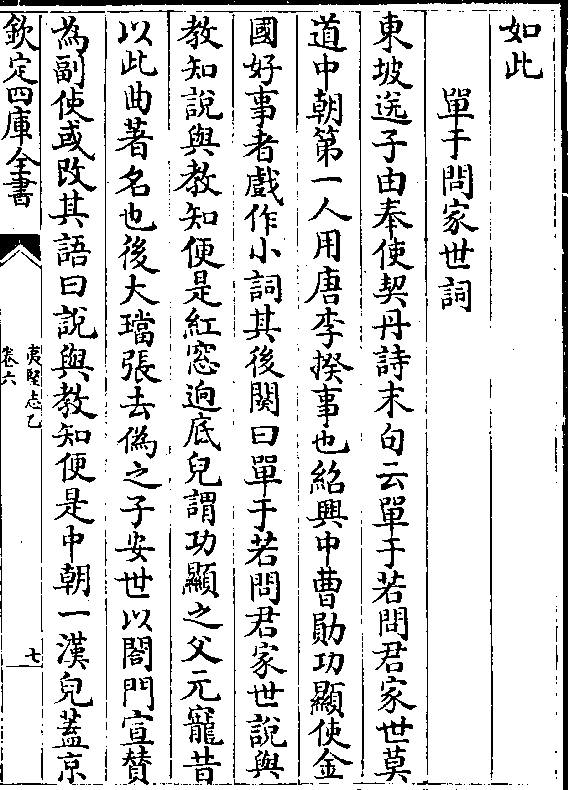 如此
單于問家世詞
東坡送子由奉使契丹詩末句云單于若問君家世莫
道中朝第一人用唐李揆事也紹興中曹勛功顯使金
國好事者戲作小詞其後闋曰單于若問君家世說與
教知說與教知便是紅窓逈底兒謂功顯之父元寵昔
以此曲著名也後大璫張去偽之子安世以閤門宣賛
為副使或改其語曰說與教知便是中朝一漢兒蓋京
欽定四庫全書
夷堅志乙
卷六
七